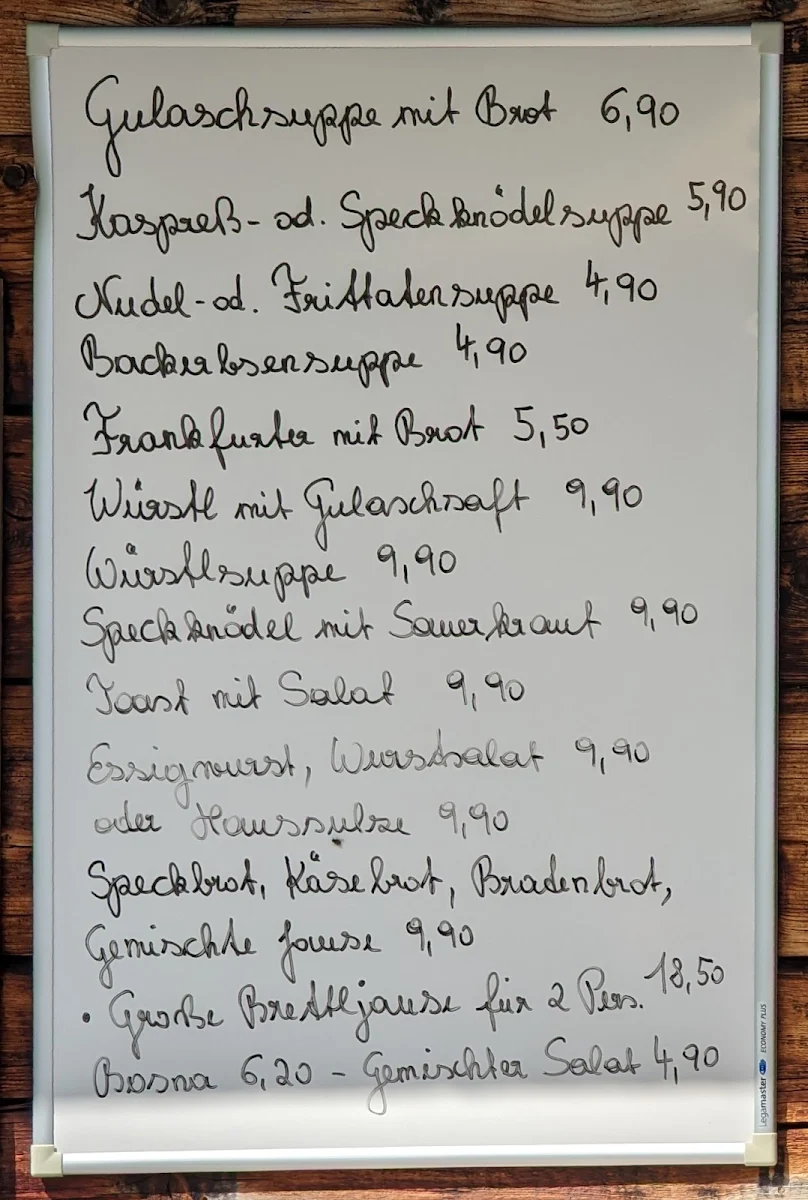 Gulaschsuppe mit Brot 6,90
Kaspreß- od. Speckknödelsuppe 5,90
Nudel- od. Frittatensuppe 4,90
Backerbsensuppe 4,90
Frankfurter mit Brot 5,50
Würstl mit Gulaschsaft 9,90
Würstlsuppe 9,90
Speckknödel mit Sauerkraut 9,90
Toast mit Salat 9,90
Essigwurst, Wurstsalat 9,90
oder Haussulze 9,90
Speckbrot, Käsebrot, Bradenbrot,
Gemischte Jause 9,90
• Große Brettljause für 2 Pers. 18,50
Bosna 6,20 - Gemischter Salat 4,90
Legamaster ECONOMY PLUS